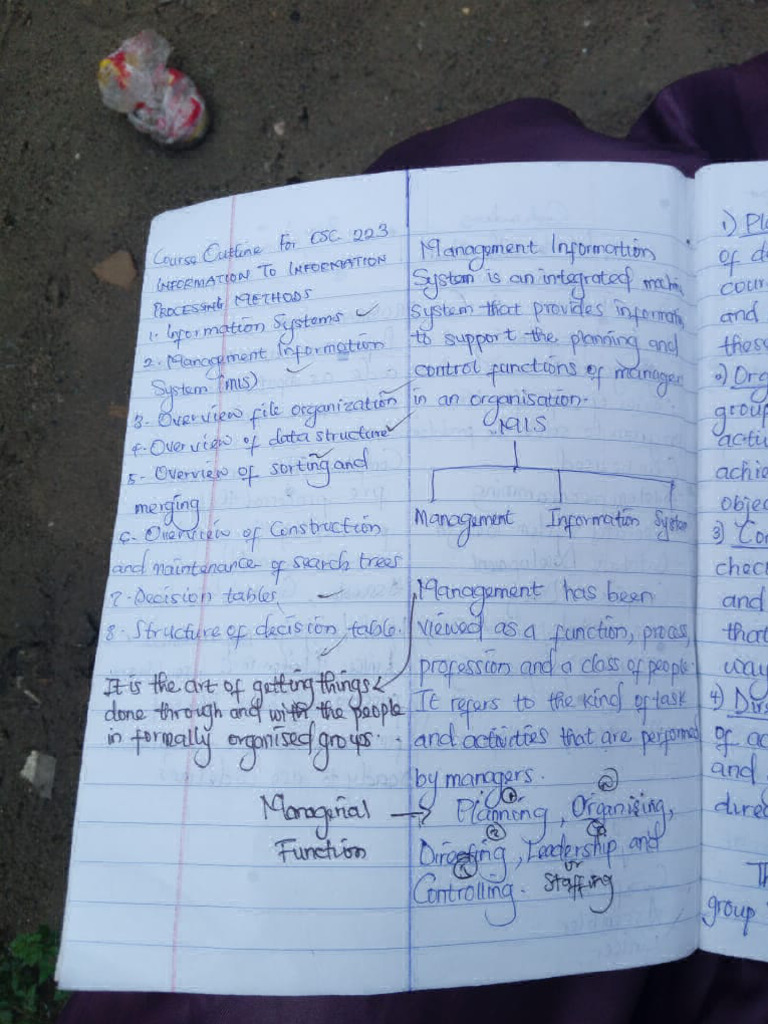 Course Outline For CSC 223
INFORMATION TO INFORMATION
PROCESSING METHODS
1. Information Systems
2. Management Information
System (MIS)
3. Overview file organization
4. Overview of data structure
5. Overview of sorting and
merging
6. Overview of Construction
and maintenance of search trees
7. Decision tables
8. Structure of decision table.
It is the art of getting things
done through and with the people
in formally organised groups.
Managerial
Function
Management Information
System is an integrated
system that provides
to support the planning and
control functions of manager
in an organisation.
M.I.S
Management Information System
Management has been
viewed as a function, process,
profession and a class of people.
It refers to the kind of task
and activities that are performed
by managers.
→ Planning, Organising,
Directing, Leadership and
or
Controlling. Staffing
1) Pla
of de
cour
and
these
2) Org
group
activ
achie
objec
3) Con
check
and
that
way
4) Dir
of ac
and
direc
Th
group